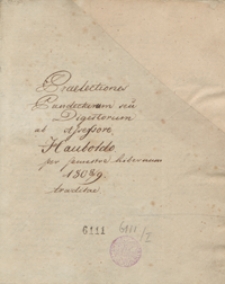 Praelectiones
Pandectarum seu
Digestorum
ab Assessore
Hauboldo
per semestre hibernum
1808/9
traditae
6111 6111/I